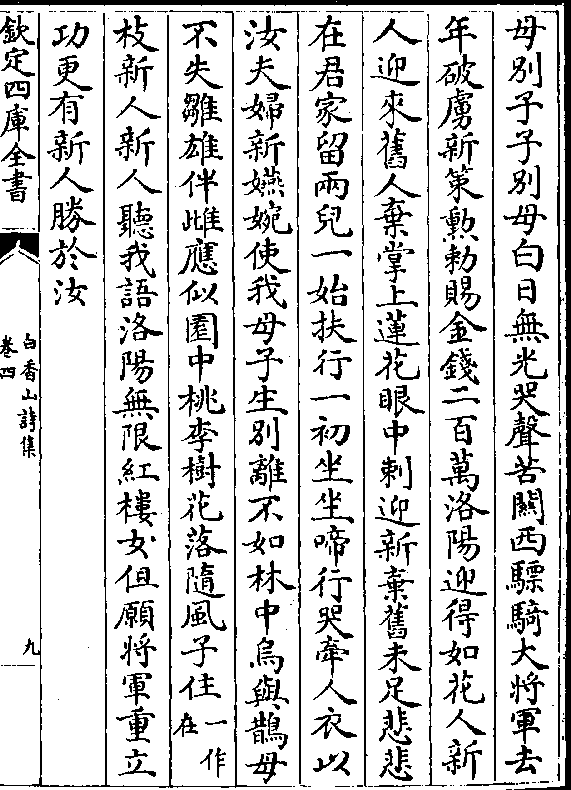 母别子子别母白日無光哭聲苦闗西驃騎大將軍去
年破虜新策勲勅賜金錢二百萬洛陽迎得如花人新
人迎來舊人棄掌上蓮花眼中刺迎新棄舊未足悲悲
在君家留兩兒一始扶行一初坐坐啼行哭牽人衣以
汝夫婦新嬿婉使我母子生别離不如林中烏與鵲母
不失雛雄伴雌應似園中桃李樹花落隨風子住一作在
枝新人新人聽我語洛陽無限紅樓女但願將軍重立
功更有新人勝於汝
欽定四庫全書
白香山詩集
卷四
九